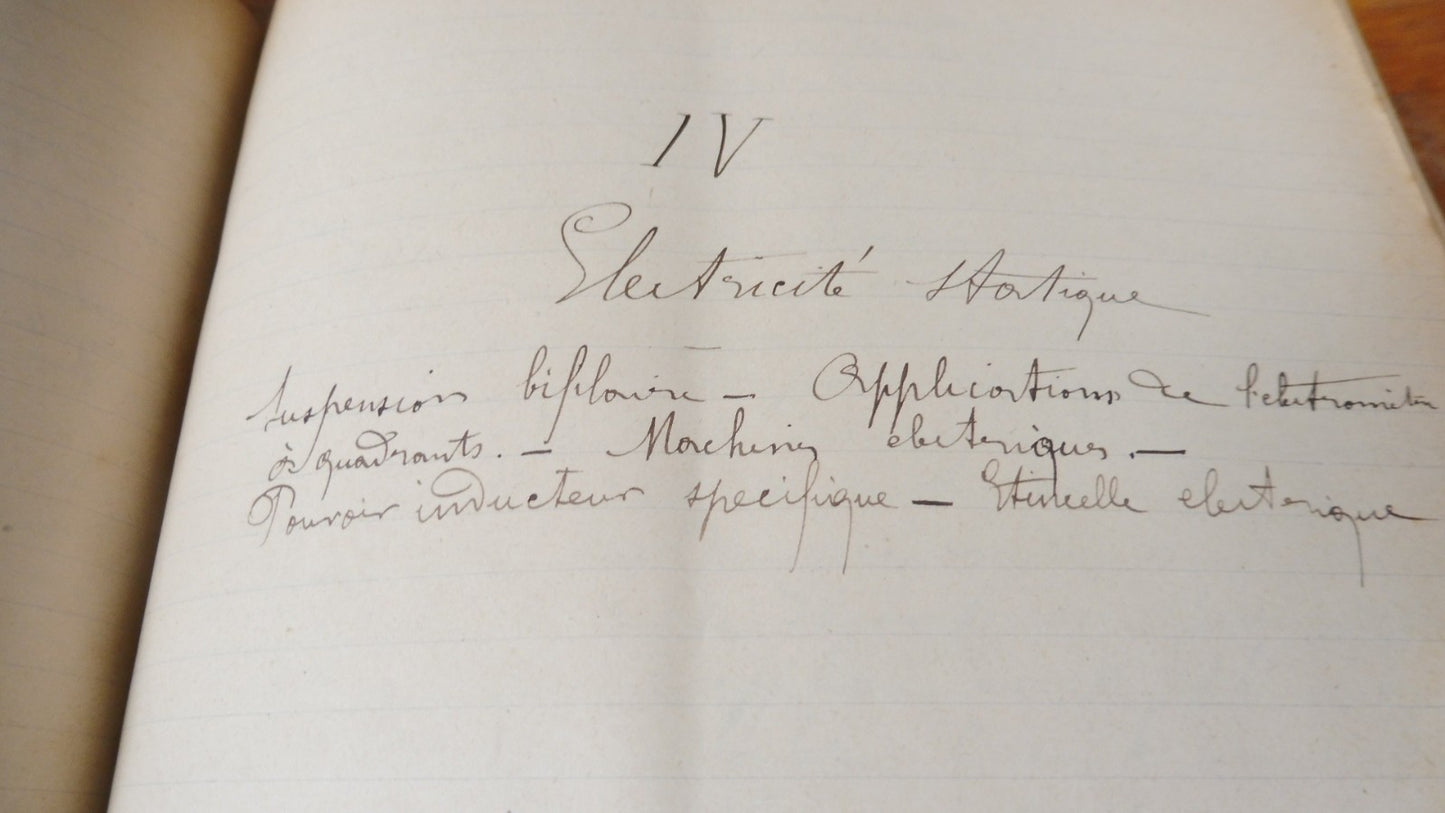 IV
Electricité statique
—
Suspension bifilaire – Applications de l'electromètre
à quadrants. – Machines electriques. –
Pouvoir inducteur specifique – Etincelle electrique